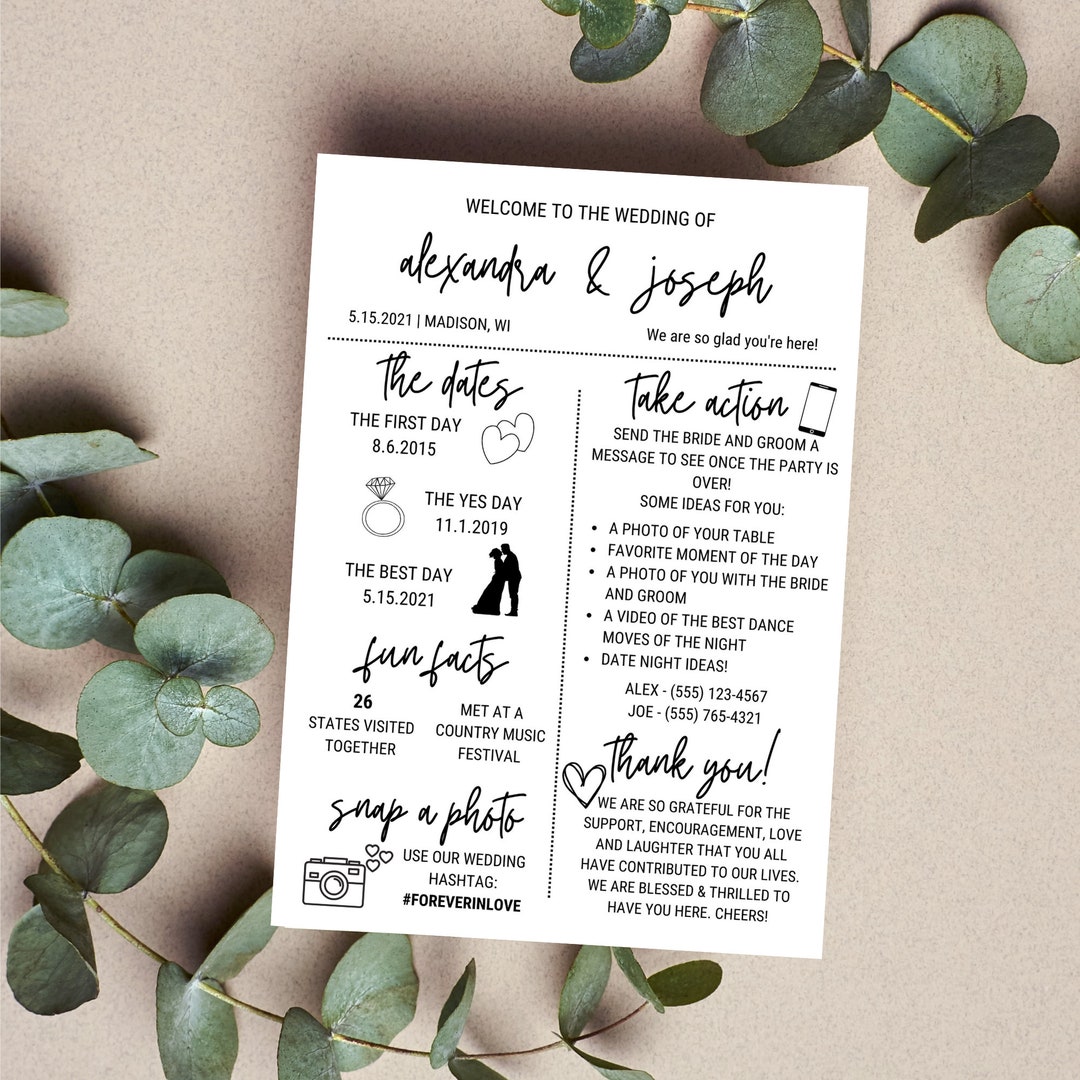 WELCOME TO THE WEDDING OF
alexandra & joseph
5.15.2021 | MADISON, WI
We are so glad you're here!
the dates
THE FIRST DAY
8.6.2015
THE YES DAY
11.1.2019
THE BEST DAY
5.15.2021
fun facts
26
STATES VISITED
TOGETHER
MET AT A
COUNTRY MUSIC
FESTIVAL
snap a photo
USE OUR WEDDING
HASHTAG:
#FOREVERINLOVE
take action
SEND THE BRIDE AND GROOM A
MESSAGE TO SEE ONCE THE PARTY IS
OVER!
SOME IDEAS FOR YOU:
• A PHOTO OF YOUR TABLE
• FAVORITE MOMENT OF THE DAY
• A PHOTO OF YOU WITH THE BRIDE
AND GROOM
• A VIDEO OF THE BEST DANCE
MOVES OF THE NIGHT
• DATE NIGHT IDEAS!
ALEX - (555) 123-4567
JOE - (555) 765-4321
thank you!
WE ARE SO GRATEFUL FOR THE
SUPPORT, ENCOURAGEMENT, LOVE
AND LAUGHTER THAT YOU ALL
HAVE CONTRIBUTED TO OUR LIVES.
WE ARE BLESSED & THRILLED TO
HAVE YOU HERE. CHEERS!